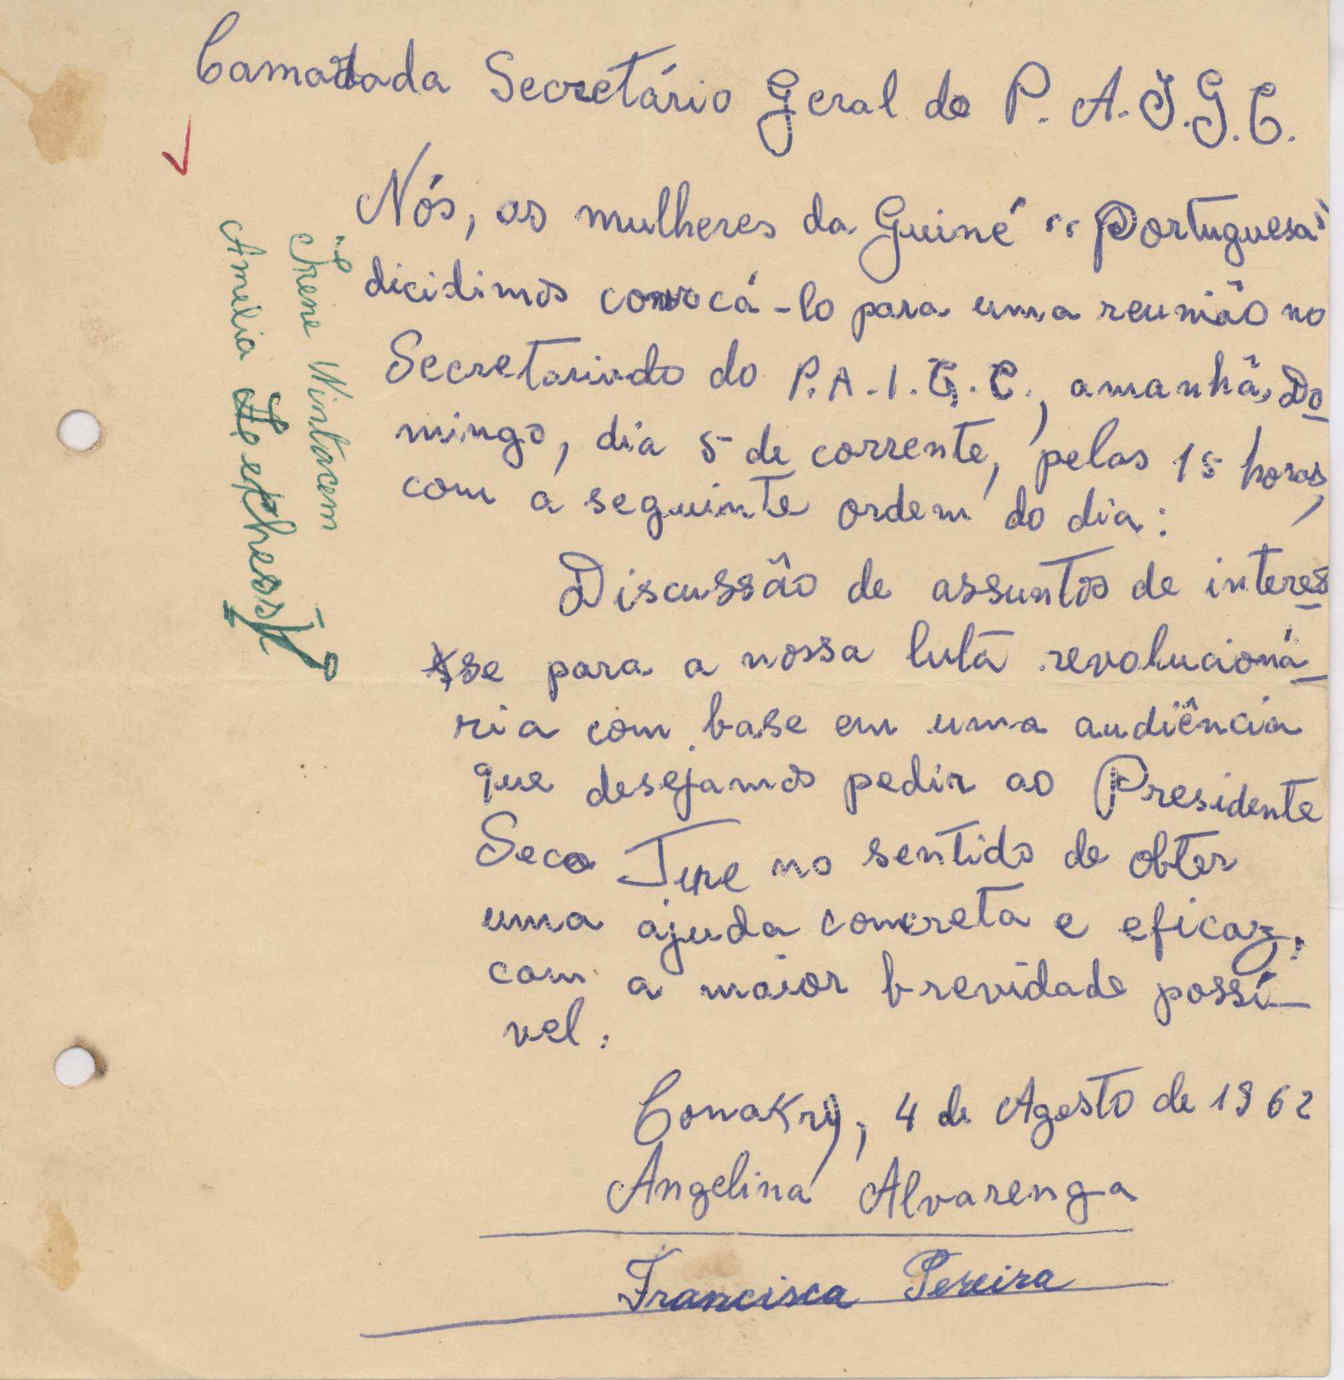 Camarada Secretário Geral do P. A. I. G. C.
Nós, as mulheres da Guiné "Portuguesa"
dicidimos convocá-lo para uma reunião no
Secretariado do P.A.I.G.C., amanhã, Do
mingo, dia 5 de corrente, pelas 15 horas,
com a seguinte ordem do dia:
Discussão de assuntos de interes
se para a nossa luta revolucioná
ria com base em uma audiência
que desejamos pedir ao Presidente
Seco Ture no sentido de obter
uma ajuda concreta e eficaz,
com a maior brevidade possí-
vel.
Conakry, 4 de Agosto de 1962
Angelina Alvarenga
Francisca Pereira
Irene
Amélia